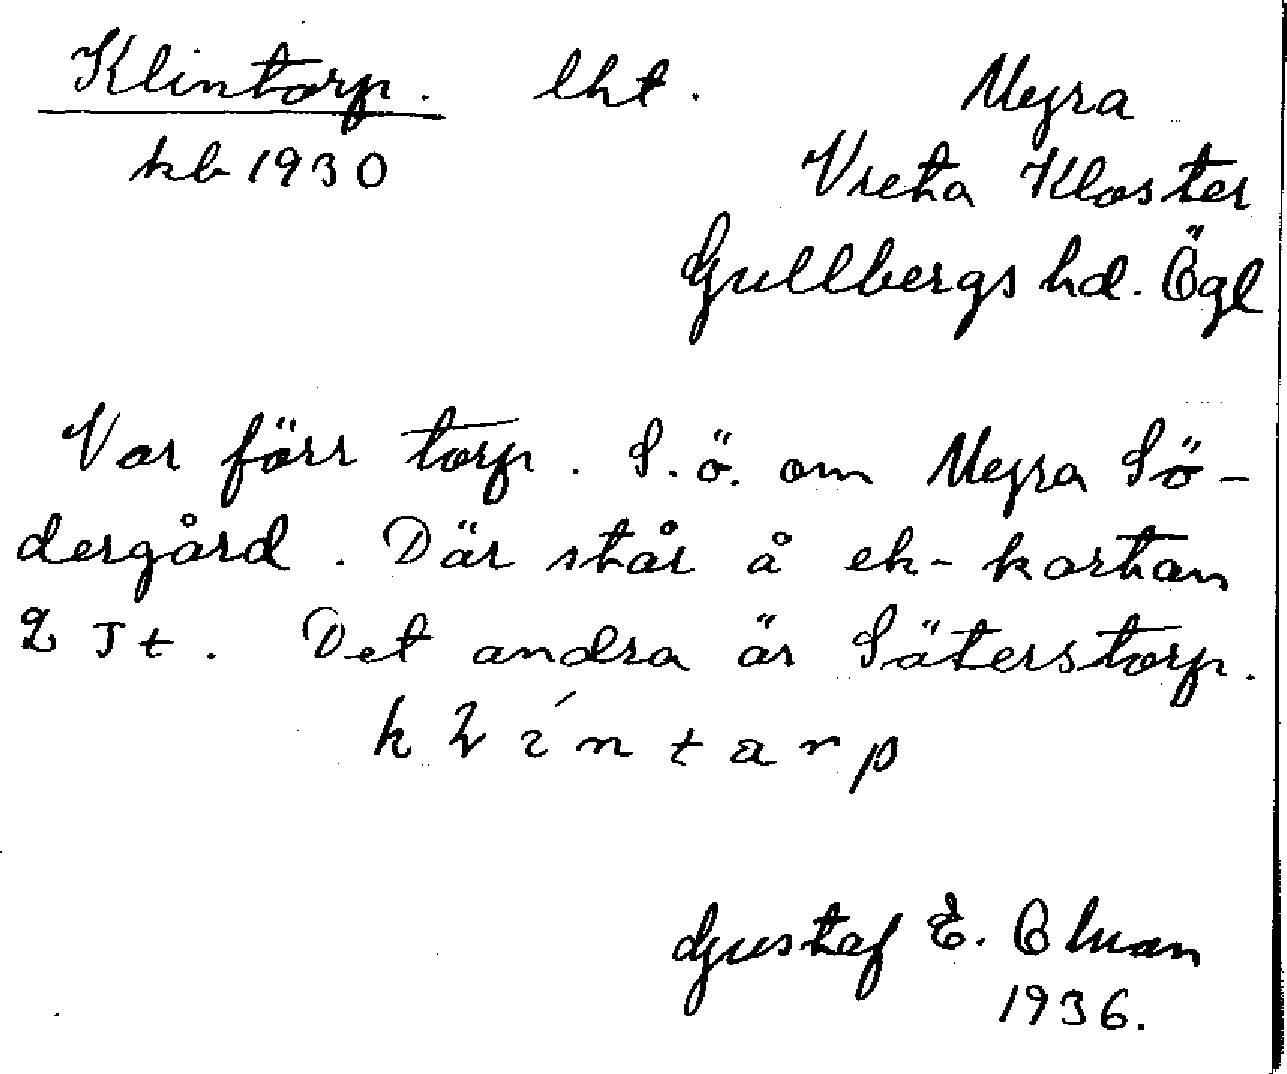 Klintorp. lht. Mejra
kb 1930 Vreta Kloster
Gullbergs hd. Ögl
Var förr torp. S.ö. om Mejra Sö-
dergård. Där står å ek-kartan
2 st. Det andra är Säterstorp.
Gustaf E. Ohman
1936.